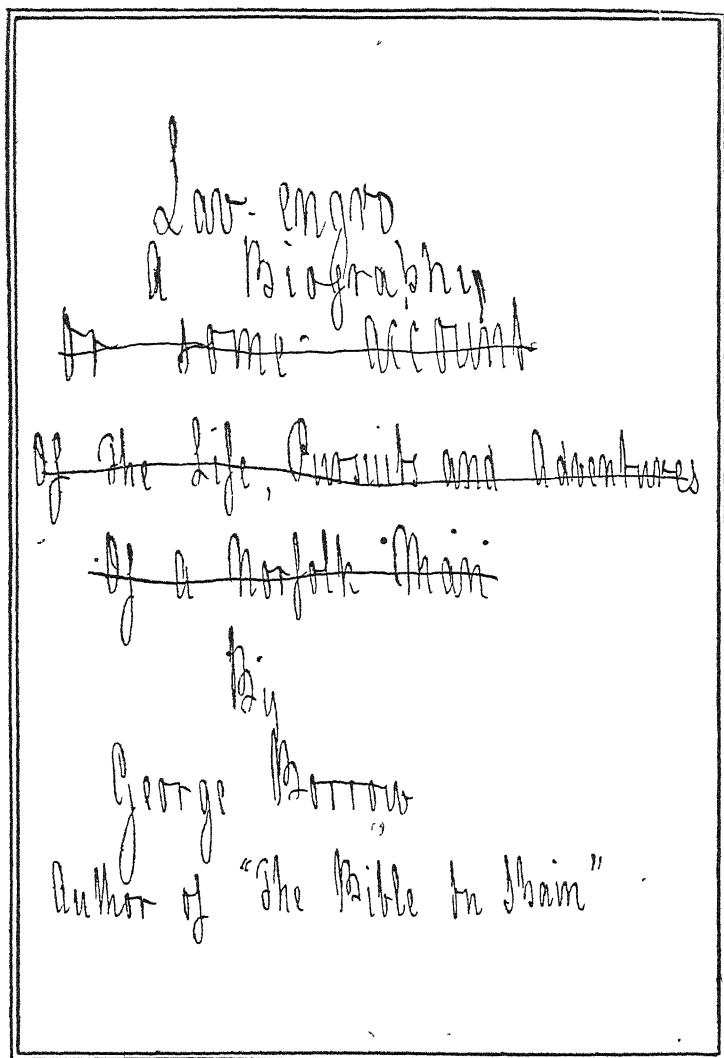 Lav-engro
A Biography
Or some account
Of The Life, Pursuits and Adventures
Of a Norfolk Man
By
George Borrow
Author of “The Bible In Spain”